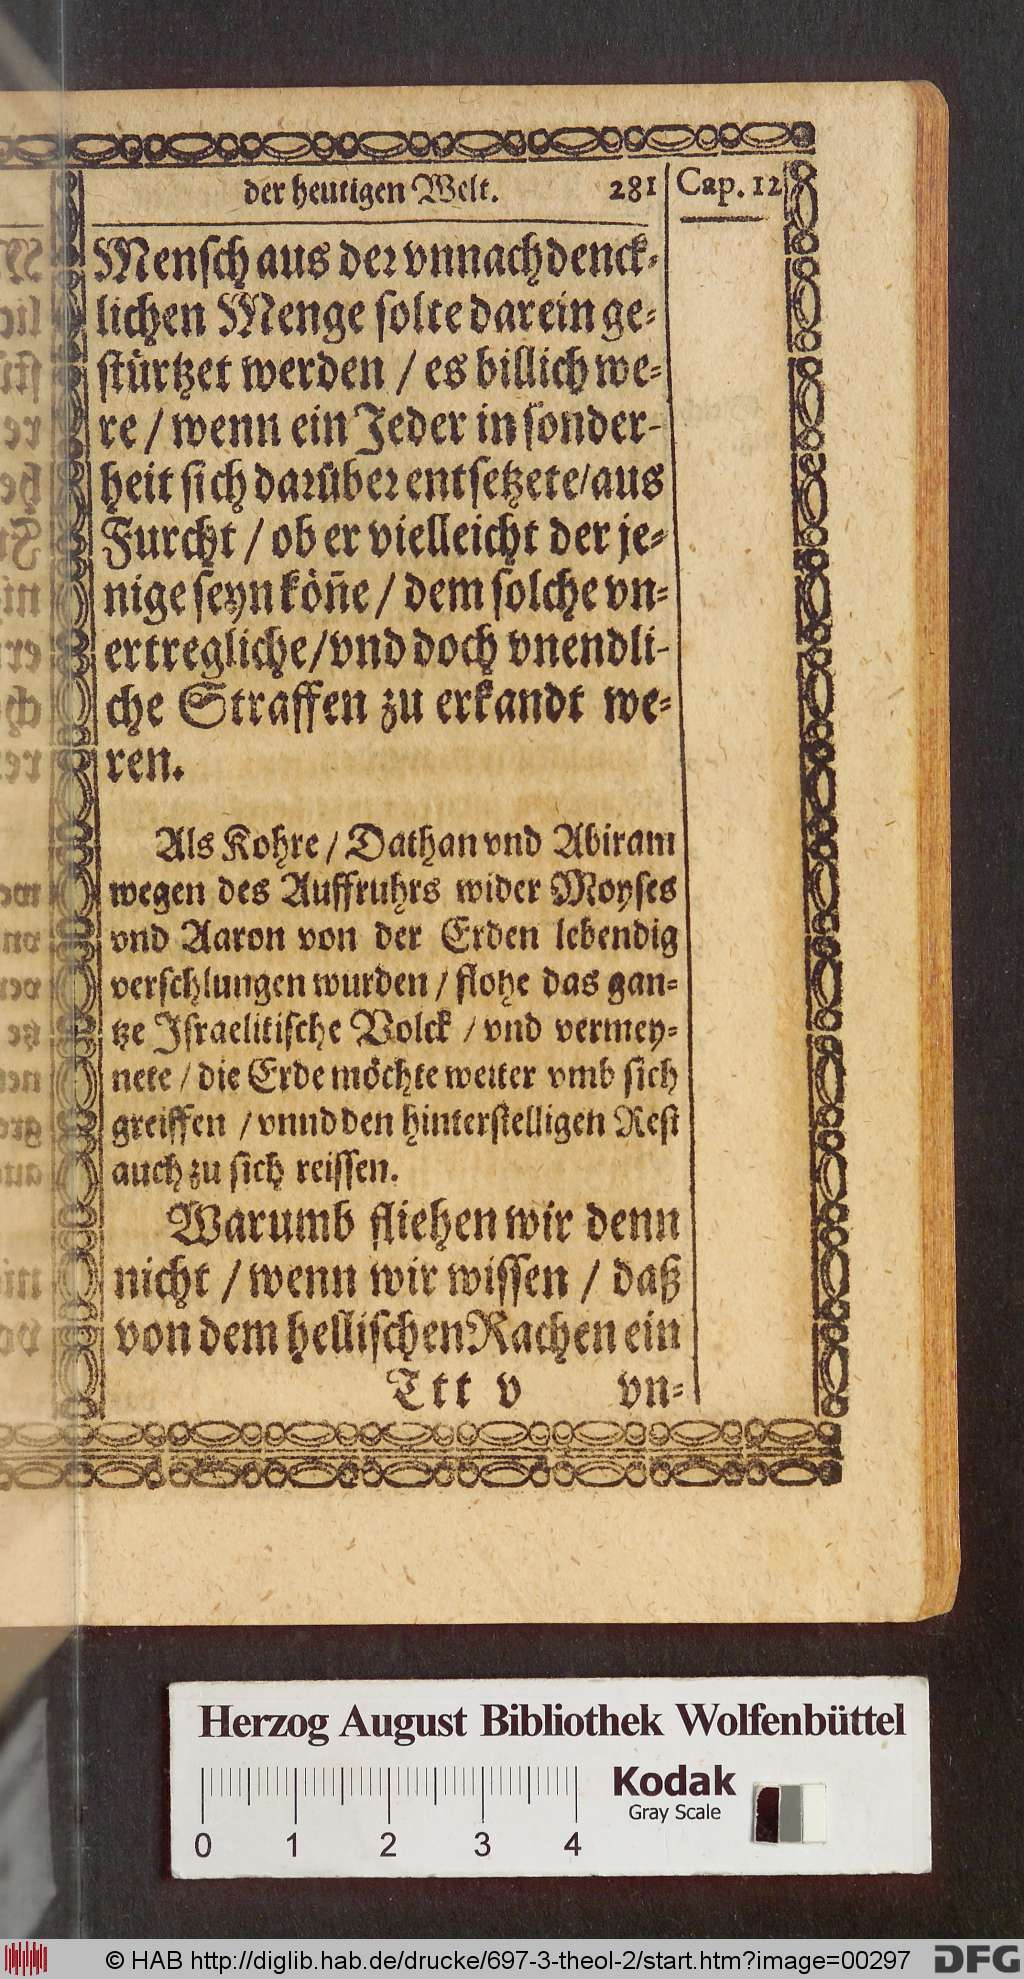 der heutigen Welt. 281 Cap. 12
Mensch aus der vnnachdenck⸗
lichen Menge solte darein ge⸗
stürtzet werden / es billich we⸗
re / wenn ein Jeder in sonder⸗
heit sich darüber entsetzete / aus
Furcht / ob er vielleicht der je⸗
nige seyn köñe / dem solche vn⸗
ertregliche / vnd doch vnendli⸗
che Straffen zu erkandt we⸗
ren.
Als Kohre / Dathan vnd Abiram
wegen des Auffruhrs wider Moyses
vnd Aaron von der Erden lebendig
verschlungen wurden / flohe das gan⸗
tze Israelitische Volck / vnd vermey⸗
nete / die Erde möchte weiter vmb sich
greiffen / vnnd den hinterstelligen Rest
auch zu sich reissen.
Warumb fliehen wir denn
nicht / wenn wir wissen / daß
von dem hellischen Rachen ein
Ttt v vn⸗
Herzog August Bibliothek Wolfenbüttel
Kodak
Gray Scale
0 1 2 3 4
© HAB http://diglib.hab.de/drucke/697-3-theol-2/start.htm?image=00297 DFG